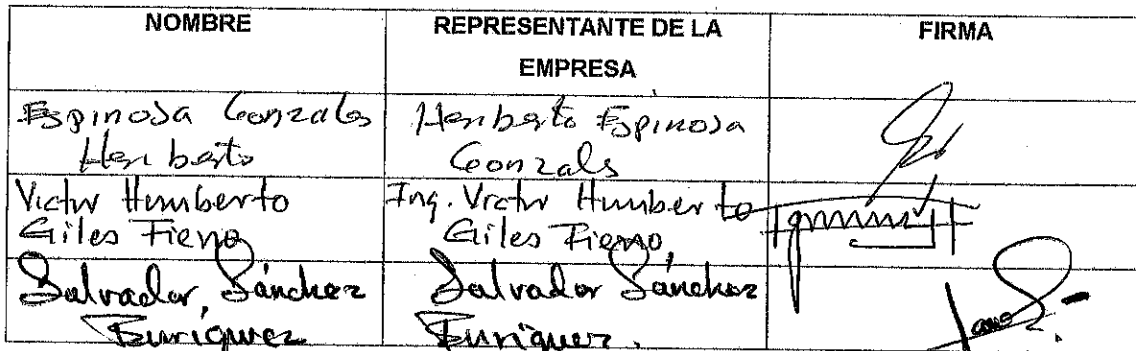 NOMBRE
REPRESENTANTE DE LA
EMPRESA
FIRMA
Espinosa Gonzales
Heriberto
Heriberto Espinosa
Gonzals
Victor Humberto
Giles Fierro
Ing. Victor Humberto
Giles Fierro
Salvador Sánchez
Enriquez
Salvador Sánchez
Enriquez.